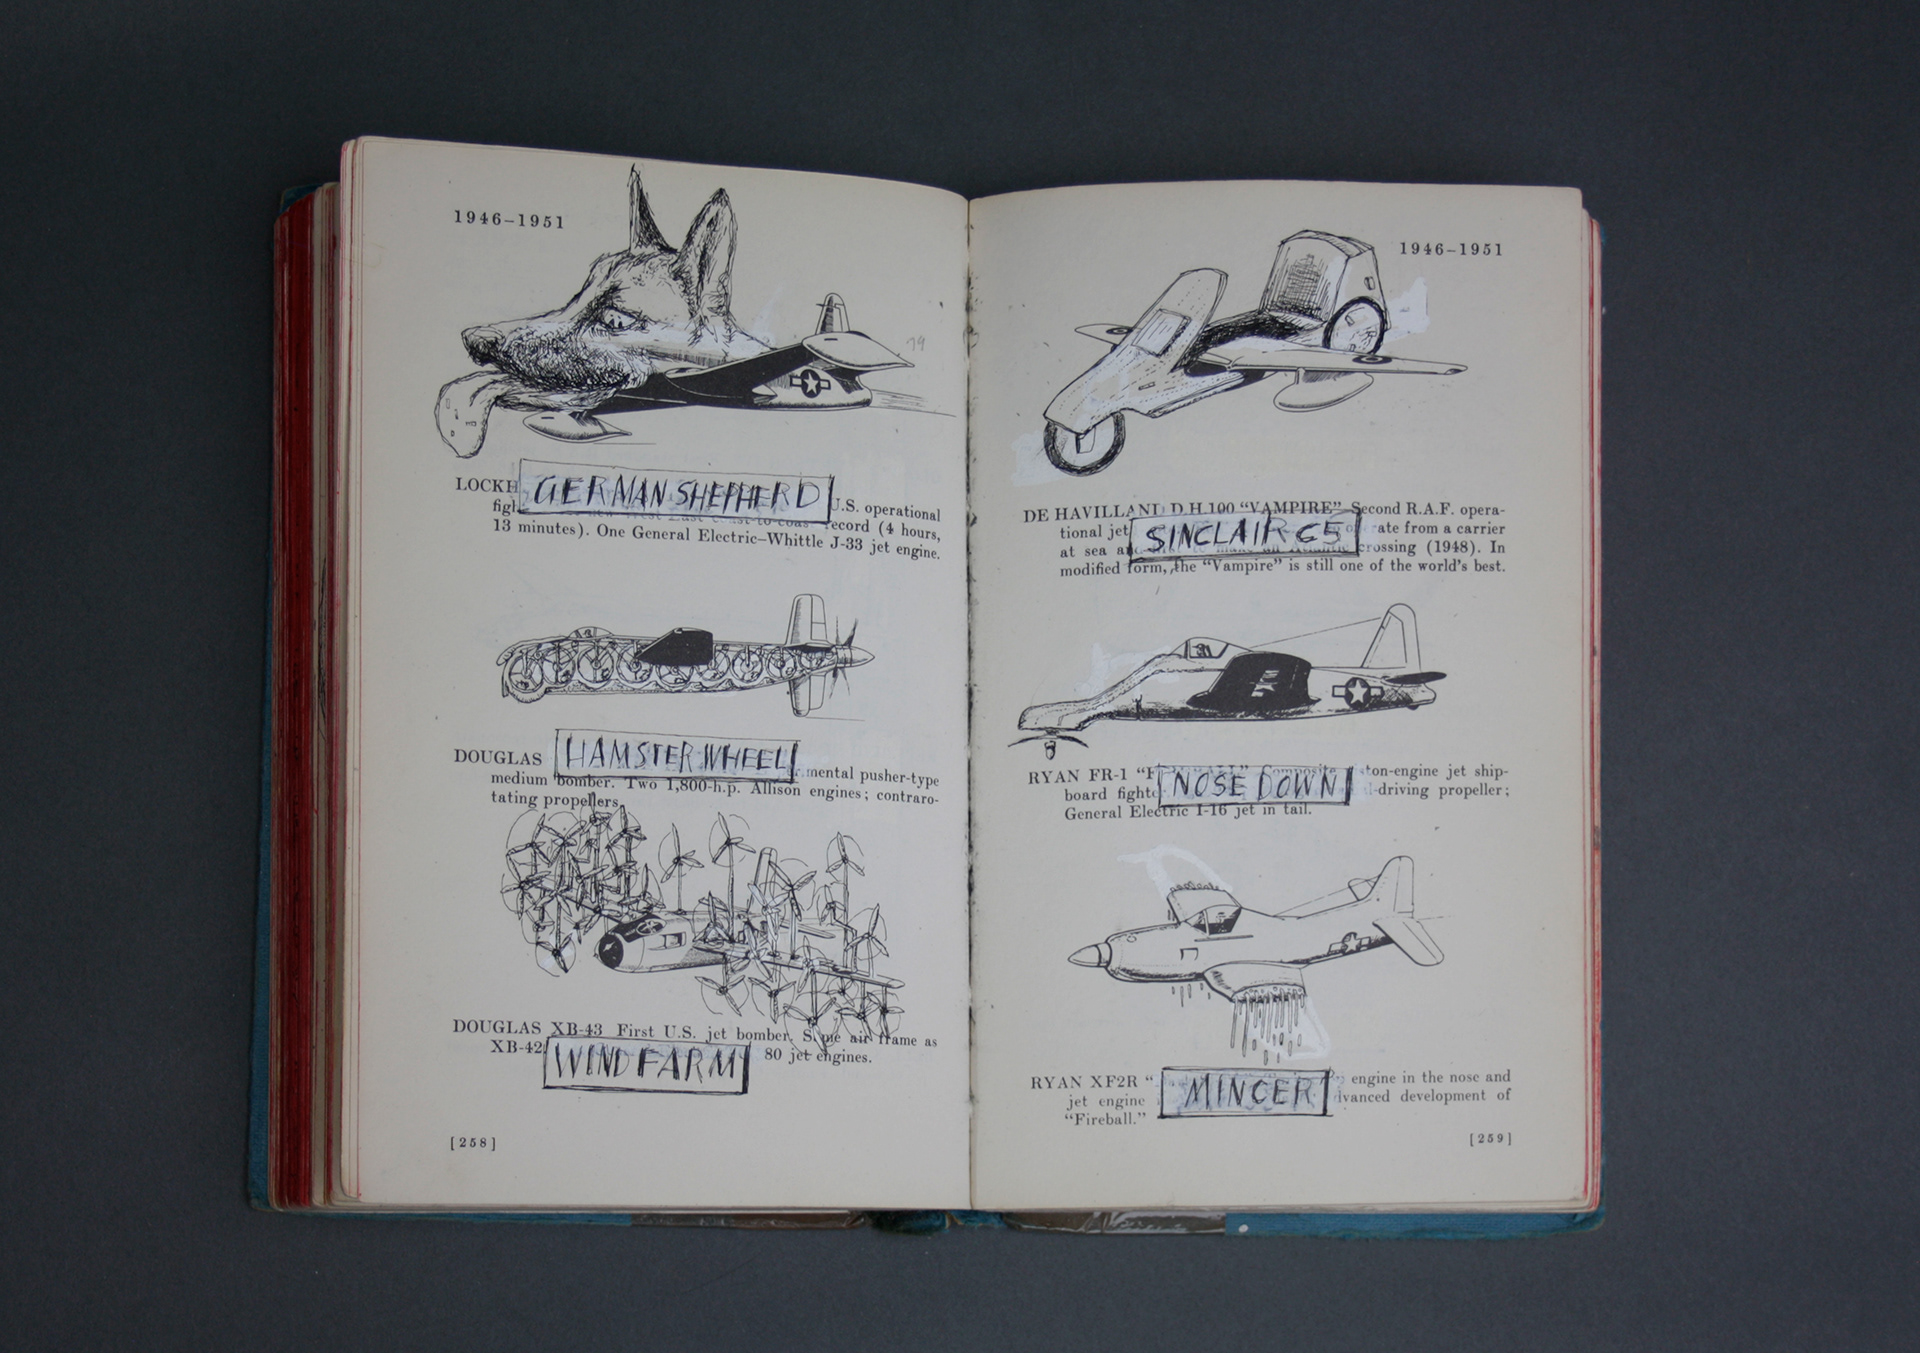 1946–1951
79
LOCKH GERMAN SHEPHERD U.S. operational
13 minutes). One General Electric–Whittle J-33 jet engine.
record (4 hours,
DOUGLAS HAMSTER WHEEL mental pusher-type
medium bomber. Two 1,800-h.p. Allison engines; contraro-
tating propellers.
DOUGLAS XB-43 First U.S. jet bomber. Same air frame as
XB-42 WIND FARM 80 jet engines.
[258]
1946–1951
DE HAVILLAND D.H.100 “VAMPIRE” Second R.A.F. opera-
tional jet SINCLAIR C5 rate from a carrier
at sea an to make an Atlantic crossing (1948). In
modified form, the “Vampire” is still one of the world’s best.
RYAN FR-1 NOSE DOWN ton-engine jet ship-
board fighte l-driving propeller;
General Electric I-16 jet in tail.
RYAN XF2R “ MINCER engine in the nose and
jet engine dvanced development of
“Fireball.”
[259]